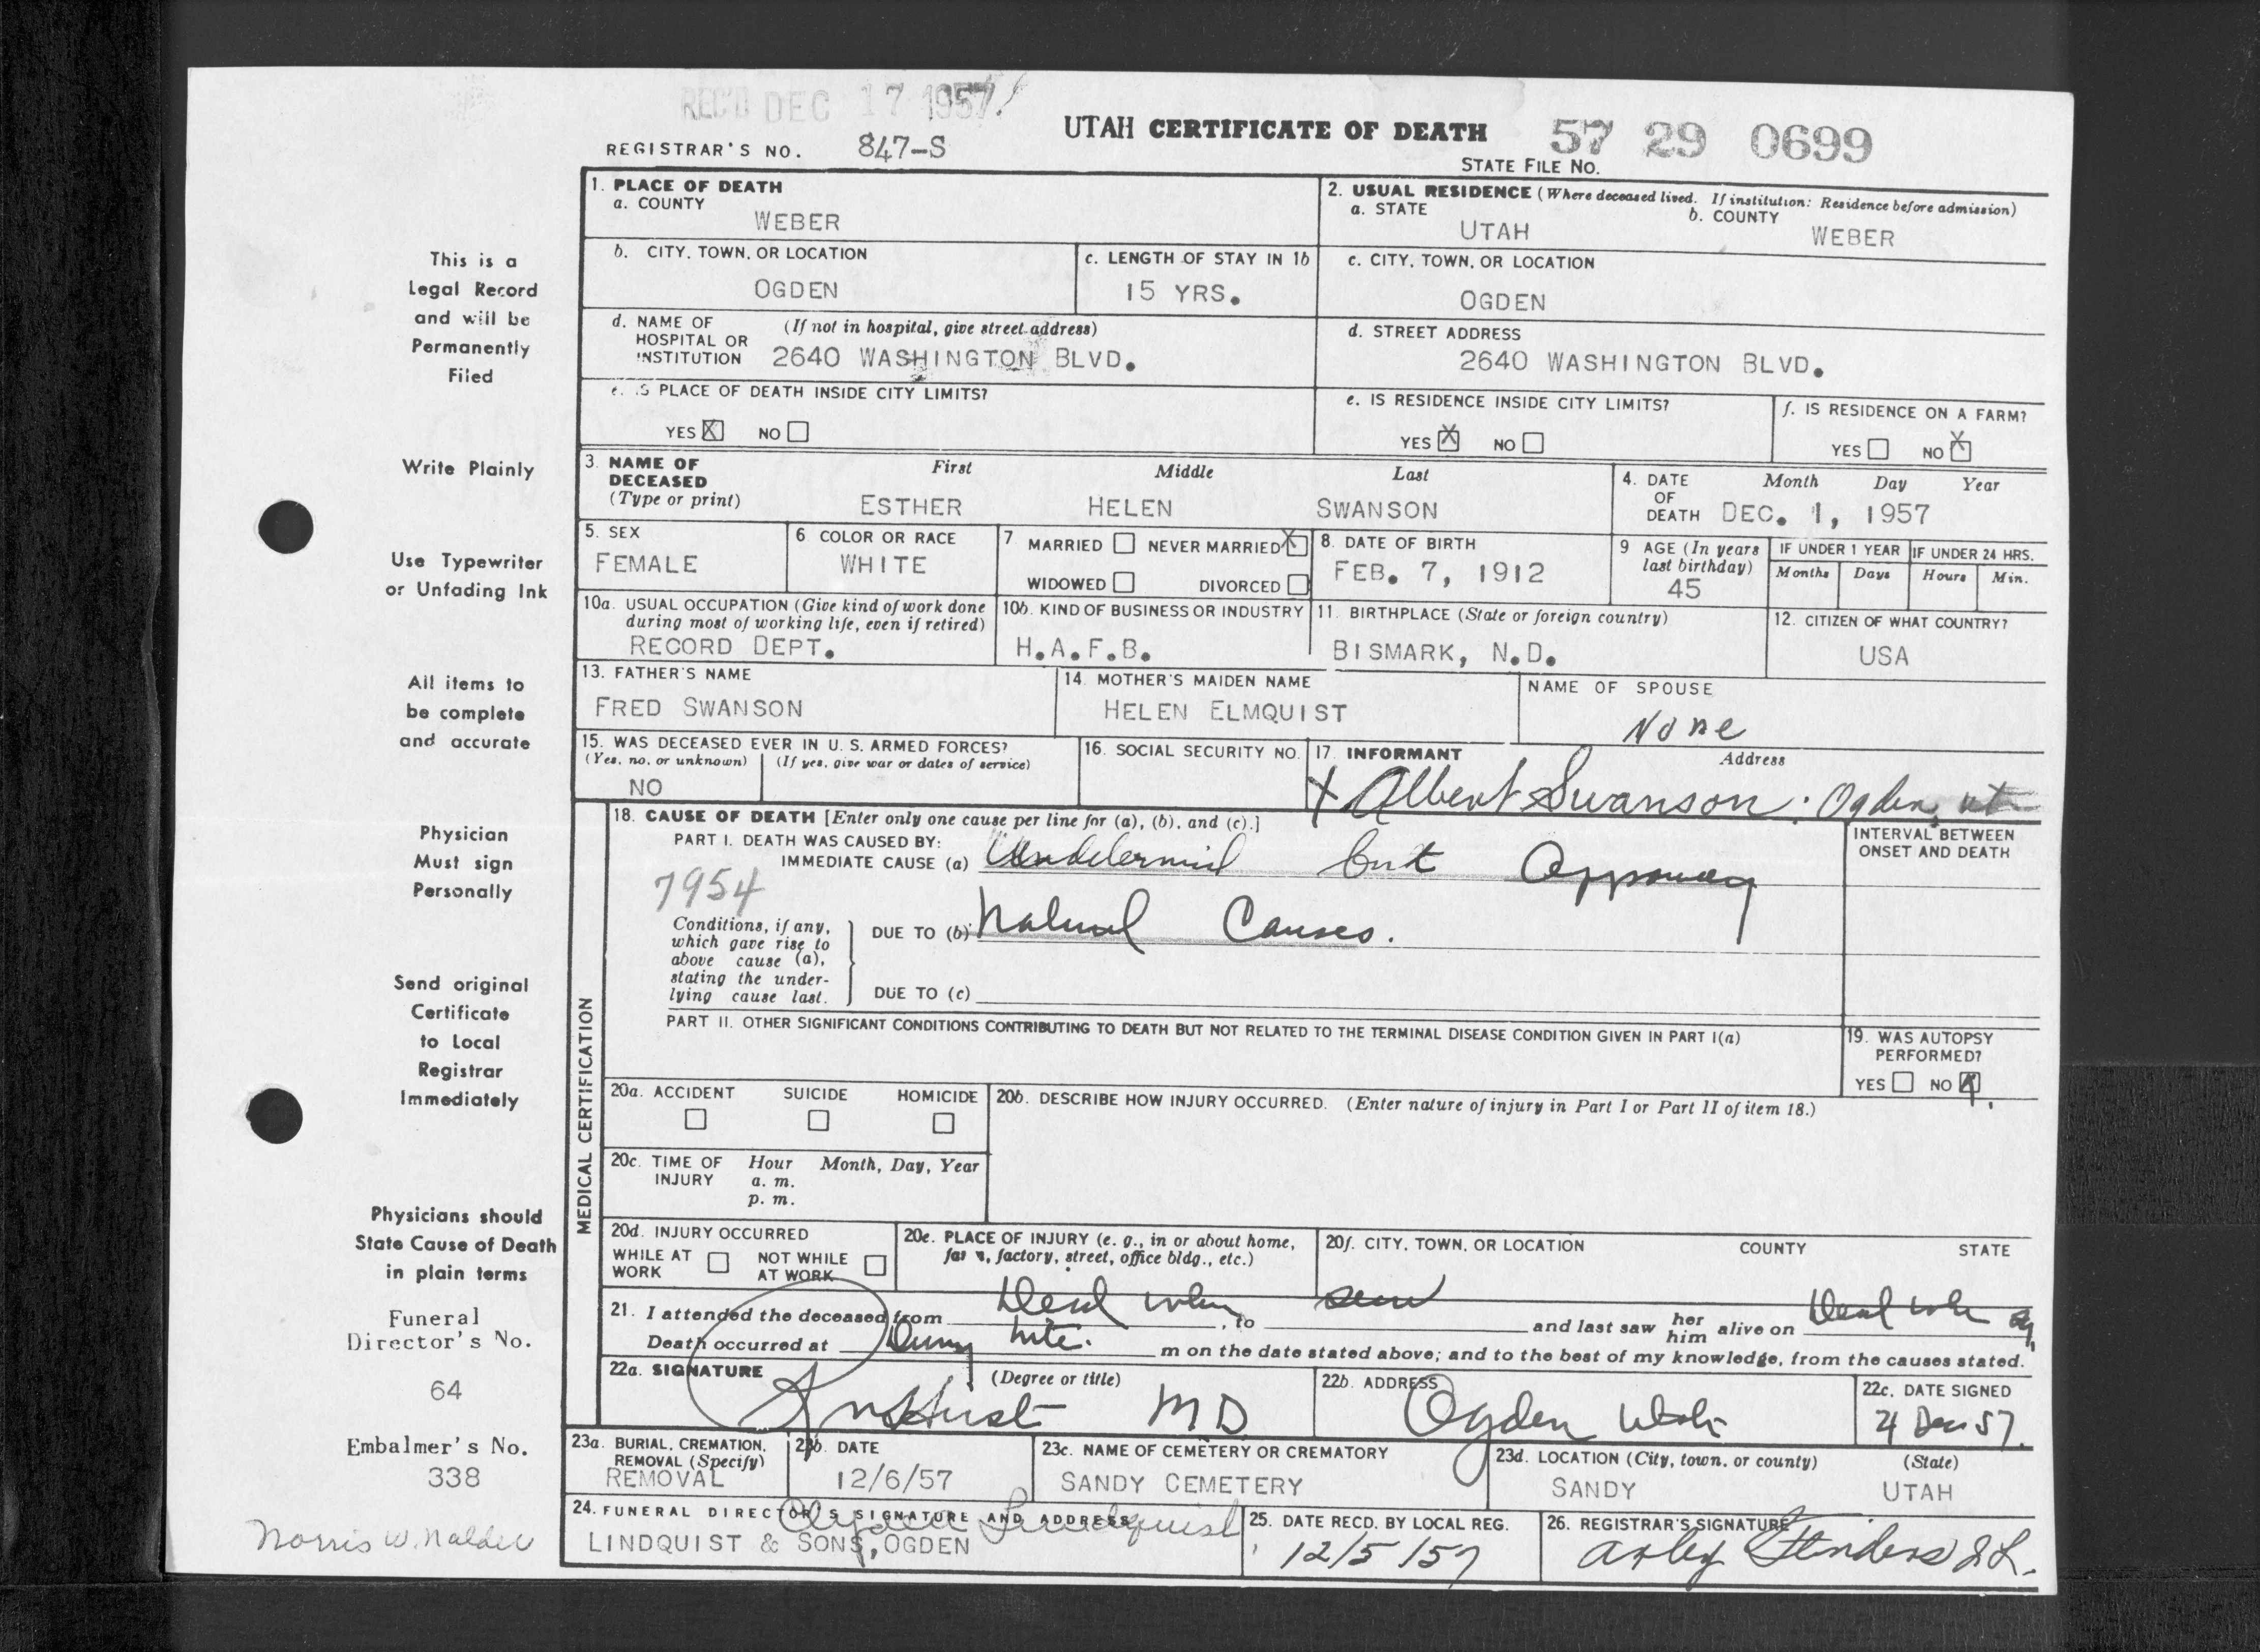 REC'D DEC 17 1957
UTAH CERTIFICATE OF DEATH 57 29 0699
REGISTRAR'S NO. 847-S
STATE FILE NO.
1. PLACE OF DEATH
a. COUNTY
WEBER
2. USUAL RESIDENCE (Where deceased lived. If institution: Residence before admission)
a. STATE b. COUNTY
UTAH WEBER
b. CITY, TOWN, OR LOCATION
OGDEN
c. LENGTH OF STAY IN 1b
15 YRS.
c. CITY, TOWN, OR LOCATION
OGDEN
d. NAME OF (If not in hospital, give street address)
HOSPITAL OR
INSTITUTION 2640 WASHINGTON BLVD.
d. STREET ADDRESS
2640 WASHINGTON BLVD.
e. IS PLACE OF DEATH INSIDE CITY LIMITS?
YES X NO
e. IS RESIDENCE INSIDE CITY LIMITS?
YES X NO
f. IS RESIDENCE ON A FARM?
YES NO X
3. NAME OF First Middle Last
DECEASED
(Type or print) ESTHER HELEN SWANSON
4. DATE Month Day Year
OF
DEATH DEC. 1, 1957
5. SEX
FEMALE
6. COLOR OR RACE
WHITE
7. MARRIED NEVER MARRIED X
WIDOWED DIVORCED
8. DATE OF BIRTH
FEB. 7, 1912
9 AGE (In years
last birthday)
45
IF UNDER 1 YEAR IF UNDER 24 HRS.
Months Days Hours Min.
10a. USUAL OCCUPATION (Give kind of work done
during most of working life, even if retired)
RECORD DEPT.
10b. KIND OF BUSINESS OR INDUSTRY
H.A.F.B.
11. BIRTHPLACE (State or foreign country)
BISMARK, N.D.
12. CITIZEN OF WHAT COUNTRY?
USA
13. FATHER'S NAME
FRED SWANSON
14. MOTHER'S MAIDEN NAME
HELEN ELMQUIST
NAME OF SPOUSE
None
15. WAS DECEASED EVER IN U. S. ARMED FORCES?
(Yes, no, or unknown) (If yes, give war or dates of service)
NO
16. SOCIAL SECURITY NO.
17. INFORMANT Address
X Albert Swanson. Ogden, ut
18. CAUSE OF DEATH [Enter only one cause per line for (a), (b), and (c).]
PART I. DEATH WAS CAUSED BY:
IMMEDIATE CAUSE (a) but
7954
INTERVAL BETWEEN
ONSET AND DEATH
Conditions, if any,
which gave rise to
above cause (a),
stating the under-
lying cause last.
DUE TO (b) Natural Causes.
DUE TO (c)
PART II. OTHER SIGNIFICANT CONDITIONS CONTRIBUTING TO DEATH BUT NOT RELATED TO THE TERMINAL DISEASE CONDITION GIVEN IN PART I(a)
19. WAS AUTOPSY
PERFORMED?
YES NO X
20a. ACCIDENT SUICIDE HOMICIDE
20b. DESCRIBE HOW INJURY OCCURRED. (Enter nature of injury in Part I or Part II of item 18.)
20c. TIME OF Hour Month, Day, Year
INJURY a. m.
p. m.
20d. INJURY OCCURRED
WHILE AT NOT WHILE
WORK AT WORK
20e. PLACE OF INJURY (e. g., in or about home,
farm, factory, street, office bldg., etc.)
20f. CITY, TOWN, OR LOCATION COUNTY STATE
21. I attended the deceased from Dead when, to seen and last saw her him alive on Dead
Death occurred at nite. m on the date stated above; and to the best of my knowledge, from the causes stated.
22a. SIGNATURE (Degree or title)
MD
22b. ADDRESS
Ogden Utah
22c. DATE SIGNED
4 Dec 57.
23a. BURIAL, CREMATION,
REMOVAL (Specify)
REMOVAL
23b. DATE
12/6/57
23c. NAME OF CEMETERY OR CREMATORY
SANDY CEMETERY
23d. LOCATION (City, town, or county) (State)
SANDY UTAH
24. FUNERAL DIRECTOR'S SIGNATURE AND ADDRESS
Lindquist
LINDQUIST & SONS, OGDEN
25. DATE RECD. BY LOCAL REG.
12/5/57
26. REGISTRAR'S SIGNATURE
MEDICAL CERTIFICATION
This is a
Legal Record
and will be
Permanently
Filed
Write Plainly
Use Typewriter
or Unfading Ink
All items to
be complete
and accurate
Physician
Must sign
Personally
Send original
Certificate
to Local
Registrar
Immediately
Physicians should
State Cause of Death
in plain terms
Funeral
Director's No.
64
Embalmer's No.
338
Norris W. Nalder